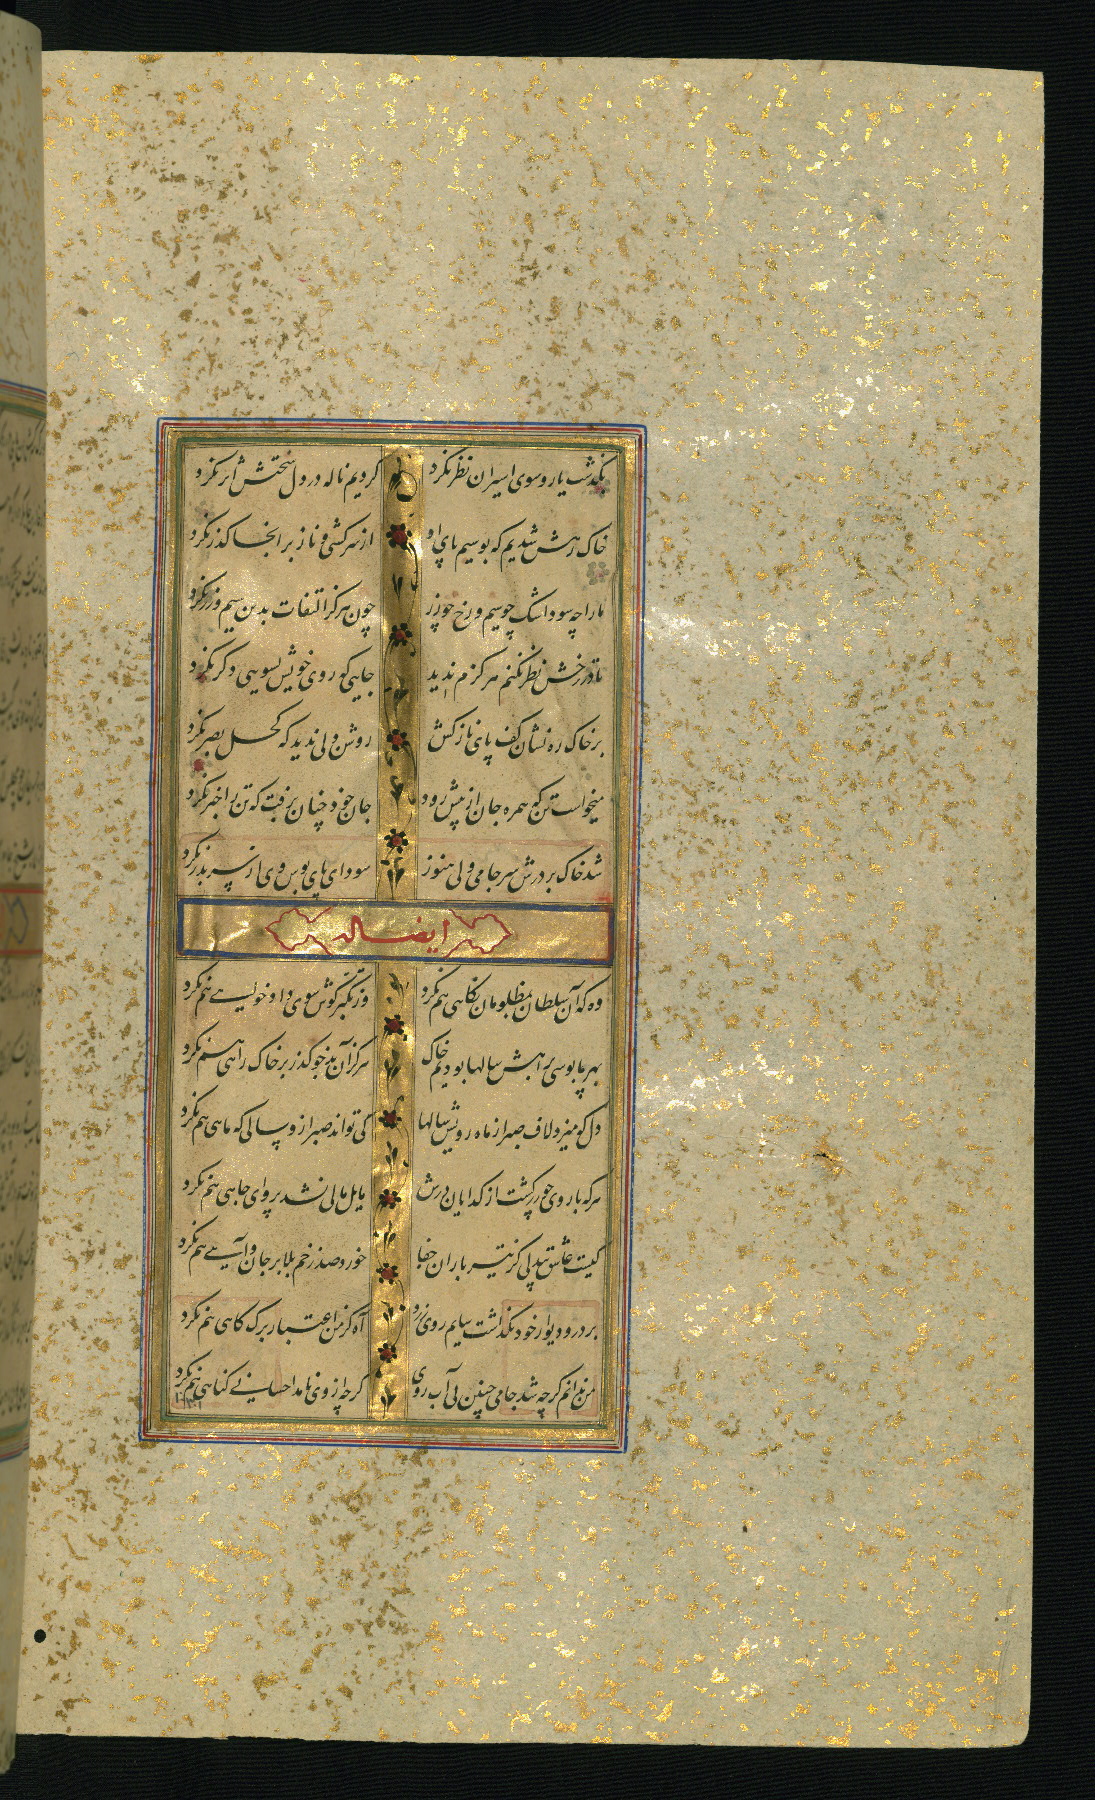 بگذشت یار و سوی اسیران نظر نکرد کردیم ناله در دل سختش اثر نکرد
خاک رهش شدیم که بوسیم پای او از سرکشی و ناز بر انجا گذر نکرد
ما را چه سود اشک چو سیم و رخ چو زر چون هرگز التفات بدین سیم و زر نکرد
تا در رخش نظر نکنم هرگزم ندید جایی که روی خویش بسویی دگر نکرد
بر خاک ره نشان کف پای نازکش روشن دلی ندید که کحل بصر نکرد
میخواست تن که همره جان از پیش رود جان خود چنان برفت که تن را خبر نکرد
شد خاک بر درش سر جامی ولی هنوز سودای پای بوس وی از سر بدر نکرد
ایضا له
وه که آن سلطان مظلومان نگاهی هم نکرد وز تکبر گوش سوی دادخواهی هم نکرد
بهر پابوسی براهش سالها بودیم خاک هرگز آن بدخو گذر بر خاک راهی هم نکرد
دل که میزد لاف صبر از ماه رویش سالها کی تواند صبر ازو سالی که ماهی هم نکرد
هرکه با روی چو زر گشت از گدایان درش مایل مالی نشد پروای جاهی هم نکرد
کیست عاشق بیدلی کز تیر باران جفا خورد صد زخم بلا بر جان و آهی هم نکرد
بر در و دیوار خود نگذاشت سایم روی زرد آه کز من اعتبار برگ کاهی هم نکرد
من ندانم کز چه شد جامی چنین بی آب روی گرچه از وی نامد احسانی گناهی هم نکرد